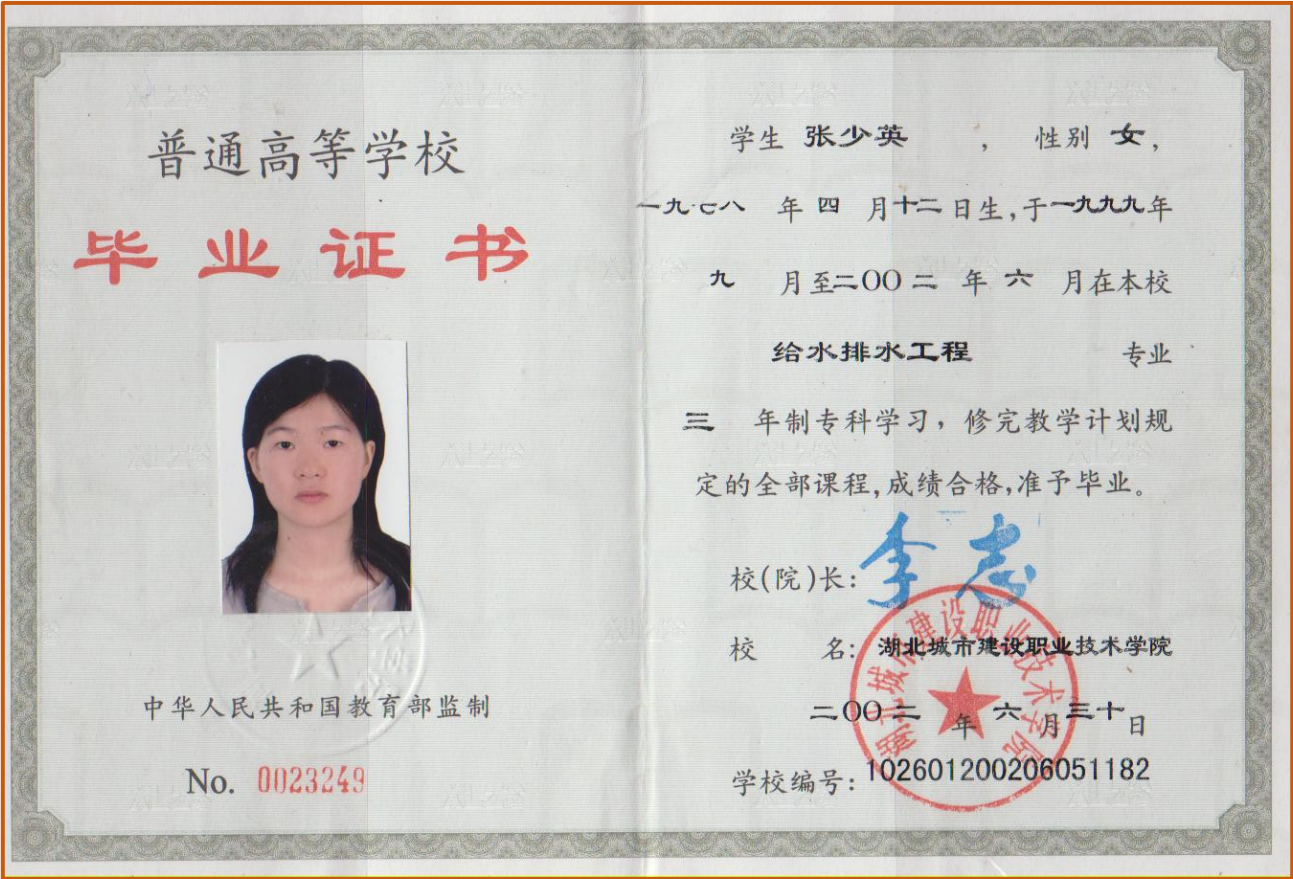 普通高等学校
毕业证书
中华人民共和国教育部监制
No. 0023249
学生 张少英 ， 性别 女，
一九七八 年 四 月十二日生，于一九九九年
九 月至二〇〇二 年 六 月在本校
给水排水工程 专业
三 年制专科学习，修完教学计划规
定的全部课程，成绩合格，准予毕业。
校(院)长：李志
校 名：湖北城市建设职业技术学院
二〇〇二年六月三十日
学校编号：102601200206051182
湖北城市建设职业技术学院